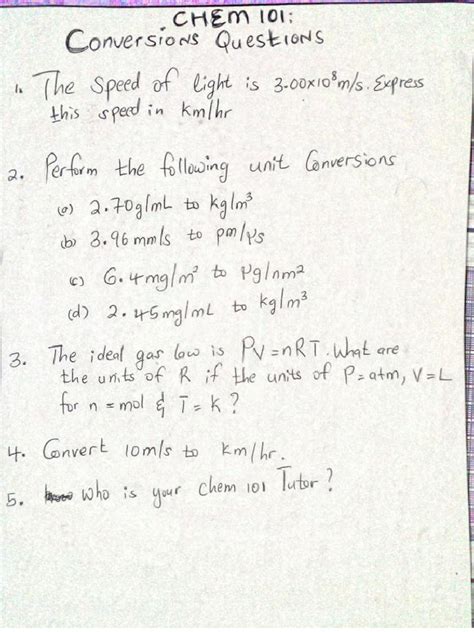 CHEM 101:
Conversions Questions
1. The Speed of light is 3.00x10⁸m/s. Express
this speed in km/hr
2. Perform the following unit Conversions
(a) 2.70g/mL to kg/m³
(b) 3.96 mm/s to pm/μs
(c) 6.4mg/m² to μg/nm²
(d) 2.45mg/mL to kg/m³
3. The ideal gas law is PV=nRT. What are
the units of R if the units of P=atm, V=L
for n=mol & T=K?
4. Convert 10m/s to km/hr.
5. Who is your Chem 101 Tutor?